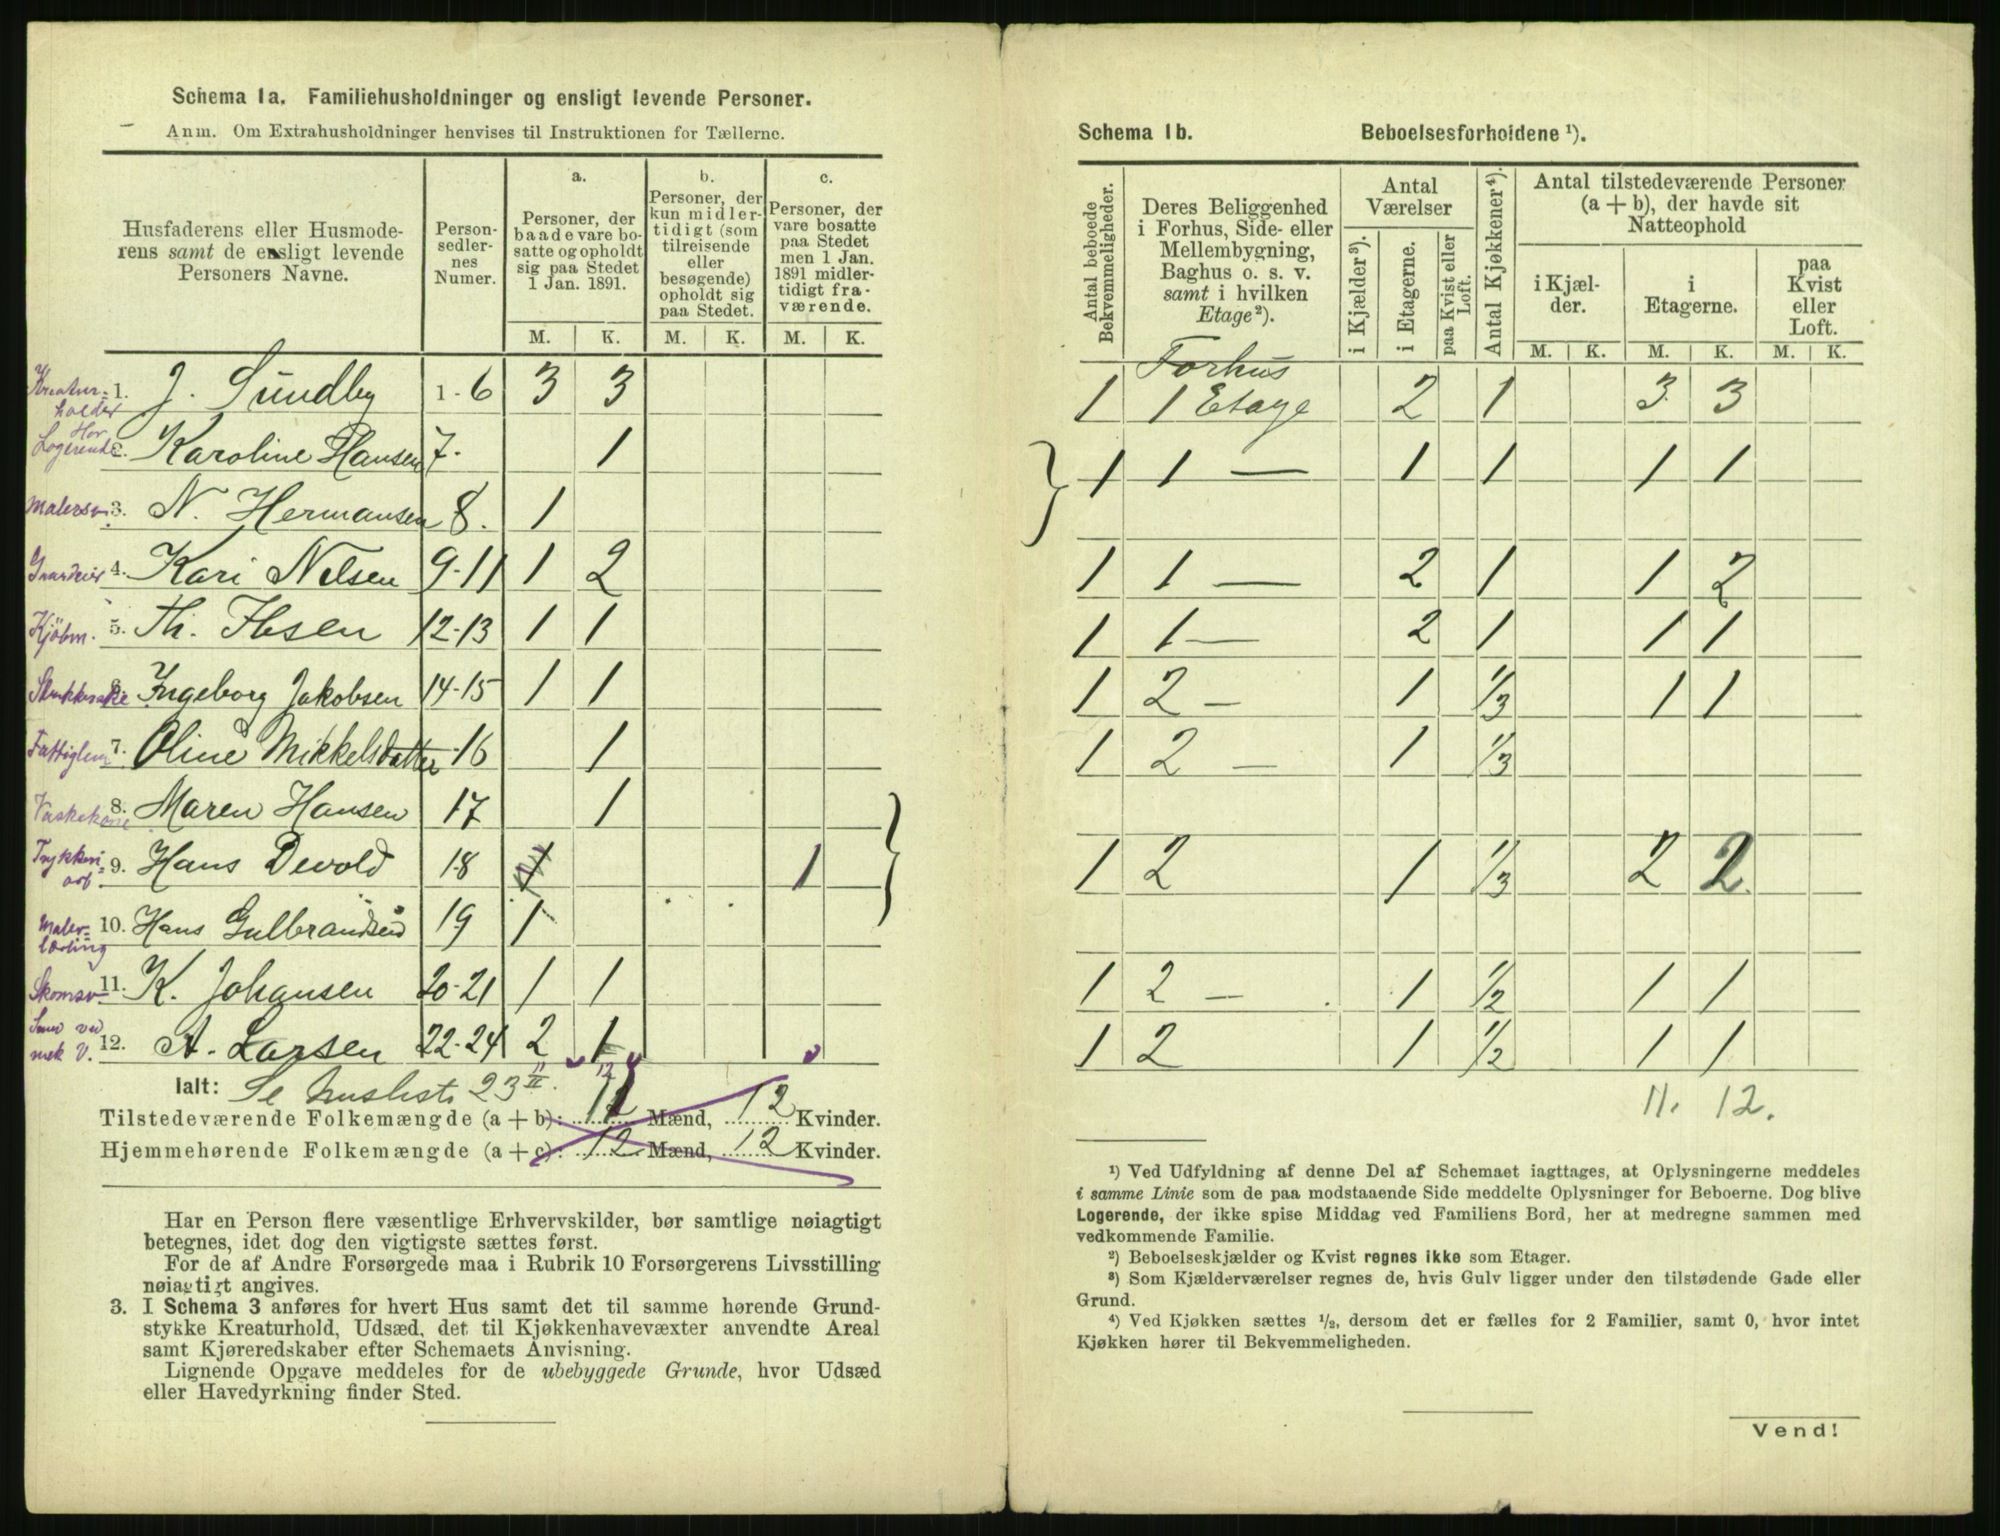 Schema 1a. Familiehusholdninger og ensligt levende Personer.
Anm. Om Extrahusholdninger henvises til Instruktionen for Tællerne.
Husfaderens eller Husmoderens samt de ensligt levende Personers Navne.
Personsedlernes Numer.
a.
Personer, der baade vare bosatte og opholdt sig paa Stedet 1 Jan. 1891.
b.
Personer, der kun midlertidigt (som tilreisende eller besøgende) opholdt sig paa Stedet.
c.
Personer, der vare bosatte paa Stedet men 1 Jan. 1891 midlertidigt fraværende.
M. K. M. K. M. K.
Kreaturholder 1. J. Sundby 1-6 3 3
Har Logerende 2. Karoline Hansen 7. 1
Malersv. 3. N. Hermansen 8. 1
Gaardeier 4. Kari Nilsen 9-11 1 2
Kjöbm. 5. Th. Ibsen 12-13 1 1
6. Ingeborg Jakobsen 14-15 1 1
Fattiglem 7. Oline Mikkelsdatter 16 1
Vaskekone 8. Maren Hansen 17 1
Trykkeriarb. 9. Hans Devold 18 1 1
Malerlærling 10. Hans Gulbrandsen 19 1
Skomsv. 11. K. Johansen 20-21 1 1
Smed ved mek V. 12. A. Larsen 22-24 2 1
Ialt: Se Husliste 23 II/II. 12
Tilstedeværende Folkemængde (a + b): 12 Mænd, 12 Kvinder.
Hjemmehørende Folkemængde (a + c): 12 Mænd, 12 Kvinder.
Har en Person flere væsentlige Erhvervskilder, bør samtlige nøiagtigt
betegnes, idet dog den vigtigste sættes først.
For de af Andre Forsørgede maa i Rubrik 10 Forsørgerens Livsstilling
nøiagtigt angives.
3. I Schema 3 anføres for hvert Hus samt det til samme hørende Grund-
stykke Kreaturhold, Udsæd, det til Kjøkkenhavevæxter anvendte Areal
samt Kjøreredskaber efter Schemaets Anvisning.
Lignende Opgave meddeles for de ubebyggede Grunde, hvor Udsæd
eller Havedyrkning finder Sted.
Schema 1b. Beboelsesforholdene ¹).
Antal beboede Bekvemmeligheder.
Deres Beliggenhed i Forhus, Side- eller Mellembygning, Baghus o. s. v. samt i hvilken Etage²).
Antal Værelser
i Kjælder³).
i Etagerne.
paa Kvist eller Loft.
Antal Kjøkkener⁴).
Antal tilstedeværende Personer (a + b), der havde sit Natteophold
i Kjælder.
i Etagerne.
paa Kvist eller Loft.
M. K. M. K. M. K.
Forhus
1 1 Etage 2 1 3 3
1 1 — 1 1 1 1
1 1 — 2 1 1 2
1 1 — 2 1 1 1
1 2 — 1 1/3 1 1
1 2 — 1 1/3
1 2 1 1/3 2 2
1 2 — 1 1/2 1 1
1 2 1 1/2 1 1
11. 12.
¹) Ved Udfyldning af denne Del af Schemaet iagttages, at Oplysningerne meddeles
i samme Linie som de paa modstaaende Side meddelte Oplysninger for Beboerne. Dog blive
Logerende, der ikke spise Middag ved Familiens Bord, her at medregne sammen med
vedkommende Familie.
²) Beboelseskjælder og Kvist regnes ikke som Etager.
³) Som Kjælderværelser regnes de, hvis Gulv ligger under den tilstødende Gade eller
Grund.
⁴) Ved Kjøkken sættes ½, dersom det er fælles for 2 Familier, samt 0, hvor intet
Kjøkken hører til Bekvemmeligheden.
Vend!